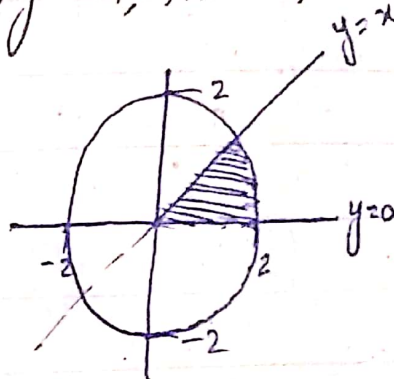 y=x
2
y=0
-2
2
-2